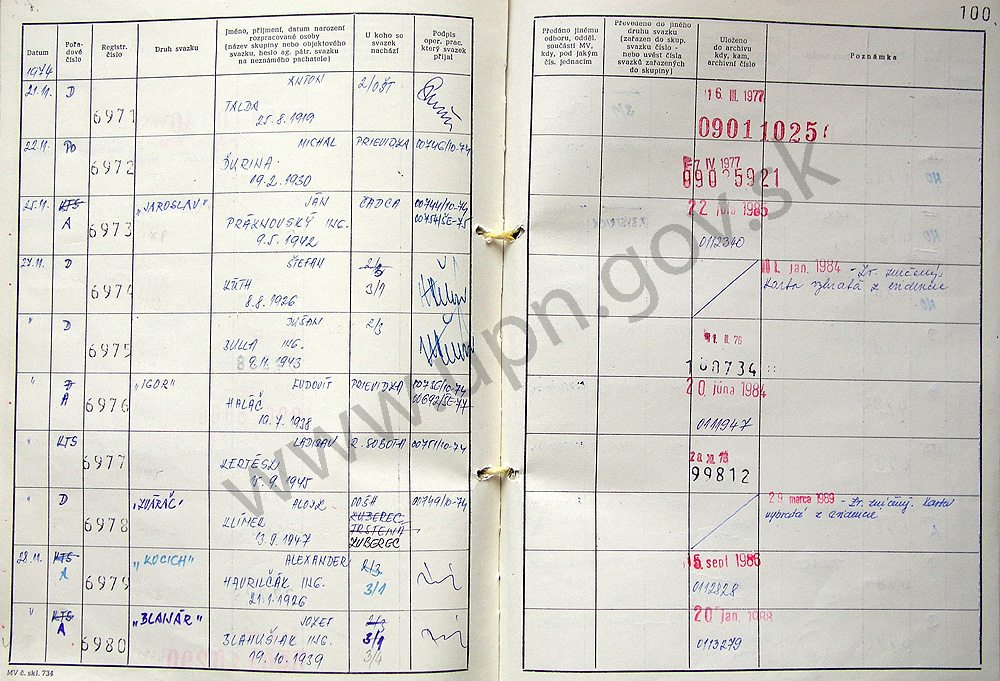 100.
Datum
Pořa-
dové
číslo
Registr.
číslo
Druh svazku
Jméno, příjmení, datum narození
rozpracované osoby
(název skupiny nebo objektového
svazku, heslo ag. pátr. svazku
na neznámého pachatele)
U koho se
svazek
nachází
Podpis
oper. prac.
který svazek
přijal
Předáno jinému
odboru, odděl.
součásti MV,
kdy, pod jakým
čís. jednacím
Převedeno do jiného
druhu svazku
(zařazen do skup.
svazku číslo -
nebo uvést čísla
svazků zařazených
do skupiny)
Uloženo
do archivu
kdy, kam,
archivní číslo
Poznámka
1974
21.11. D 6971 ANTON 2/OŠT
TALDA
25.8.1919
16. III. 1977
09011025
22.11. PO 6972 MICHAL PRIEVIDZA 00746/10-74
ĎURINA
19.2.1930
7 IV 1977
0905921
25.11. KTS 6973 "JAROSLAV" JÁN ČADCA 00744/10-74
A PRÁZNOVSKÝ ING. 00754/ŠE-75
9.5.1942
22 júla 1985
0112340
27.11. D 6974 ŠTEFAN 2/3
KÚTH 3/1
8.8.1926
1. jan. 1984 - Zr. zničený.
Karta vybratá z evidencie
" D 6975 DUŠAN 2/3
ING.
8.11.1943
II. 76
100734
" A 6976 "IGOR" ĽUDOVÍT PRIEVIDZA 00736/10-74
HALÁČ 00692/ŠE-77
10.7.1938
20. júna 1984
0111947
" KTS 6977 LADISLAV R. SOBOTA 00751/10-74
KERTÉSZ
5.9.1945
20. XII. 73
99812
" D 6978 "ZVÁRAČ" ALOJZ OOŠH 00749/10-74
KLIMEK ZUBEREC
13.9.1947 TRSTENÁ
ZUBEREC
29 marca 1989 - Zr. zničený. Karta
vybratá z evidencie
28.11. KTS 6979 "KOCICH" ALEXANDER 2/3
A HAVRILČÁK ING. 3/1
21.1.1926
15. sept 1986
0112828
" KTS 6980 "BLANÁR" JOZEF 2/3
A BLAHUŠIAK ING. 3/1
19.10.1939 3/4
20 jan. 1988
0113279
MV č. skl. 734
www.upn.gov.sk